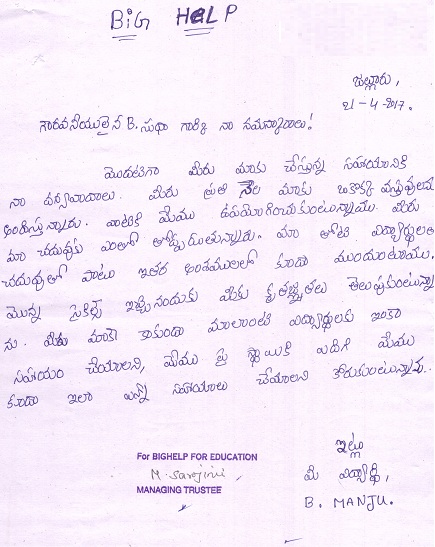 BIG HELP
జుల్లూరు,
21-4-2017.
గౌరవనీయులైన B. సుధా గారికి నా నమస్కారాలు!
మొదటిగా మీరు మాకు చేస్తున్న సహాయానికి
నా ధన్యవాదాలు. మీరు ప్రతి నెల మాకు ఒకొక్క వస్తువులను
అందిస్తున్నారు. వాటికి మేము ఉపయోగించుకుంటున్నాము. మీరు
మా చదువుకు ఎంతో తోడ్పడుతున్నారు. మా తోటి విద్యార్థులతో
చదువుతో పాటు ఇతర అంశములలో కూడా ముందుంటాము.
మొన్న సైకిల్స్ ఇచ్చినందుకు మీకు కృతజ్ఞతలు తెలుపుకుంటున్నా
ను. మీరు మాకే కాకుండా మాలాంటి విద్యార్థులకు ఇంకా
సహాయం చేయాలని, మేము పై స్థాయికి ఎదిగి మేము
కూడా ఇలా ఎన్నో సహాయాలు చేయాలని కోరుకుంటున్నాను.
ఇట్లు
మీ విద్యార్థి,
B. MANJU.
For BIGHELP FOR EDUCATION
M. Sarojini
MANAGING TRUSTEE